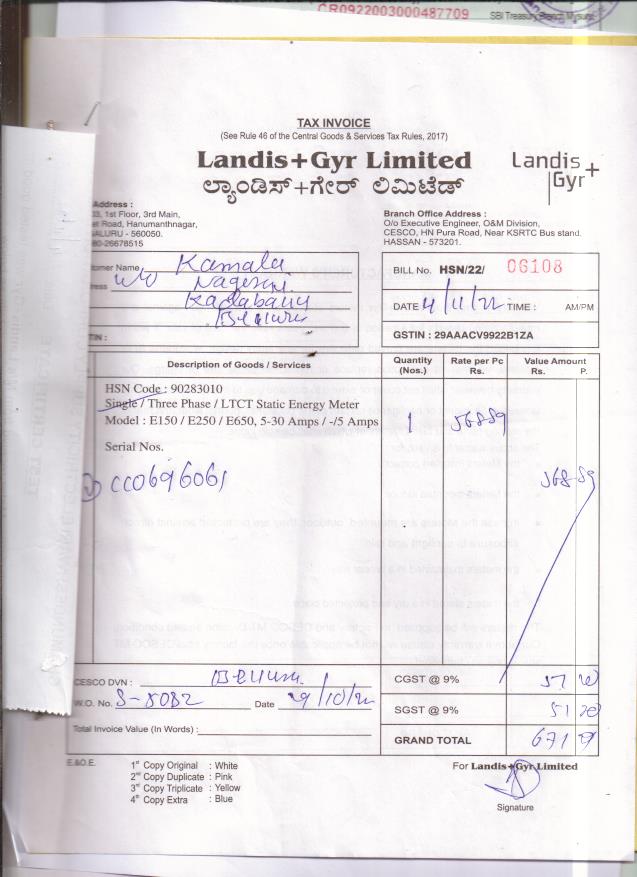 CR0922003000487709
SBI Treasury Branch Mysuru
TAX INVOICE
(See Rule 46 of the Central Goods & Services Tax Rules, 2017)
Landis+Gyr Limited
ಲ್ಯಾಂಡಿಸ್+ಗೇರ್ ಲಿಮಿಟೆಡ್
Landis
Gyr+
Address :
33, 1st Floor, 3rd Main,
et Road, Hanumanthnagar,
ALURU - 560050.
80-26678515
Branch Office Address :
O/o Executive Engineer, O&M Division,
CESCO, HN Pura Road, Near KSRTC Bus stand.
HASSAN - 573201.
tomer Name Kamala
ress w/o Nagesh
Kadabahu
Belluru
TIN :
BILL No. HSN/22/ 06108
DATE 4/11/22 TIME : AM/PM
GSTIN : 29AAACV9922B1ZA
Description of Goods / Services
Quantity (Nos.)
Rate per Pc Rs.
Value Amount Rs. P.
HSN Code : 90283010
Single / Three Phase / LTCT Static Energy Meter
Model : E150 / E250 / E650, 5-30 Amps / -/5 Amps 1 56889
Serial Nos.
CC0696061 568 89
CESCO DVN : Belluru
W.O. No. S-8082 Date 29/10/22
Total Invoice Value (In Words) :
CGST @ 9% 51 20
SGST @ 9% 51 20
GRAND TOTAL 671
E.&O.E.
1st Copy Original : White
2nd Copy Duplicate : Pink
3rd Copy Triplicate : Yellow
4th Copy Extra : Blue
For Landis+Gyr Limited
Signature